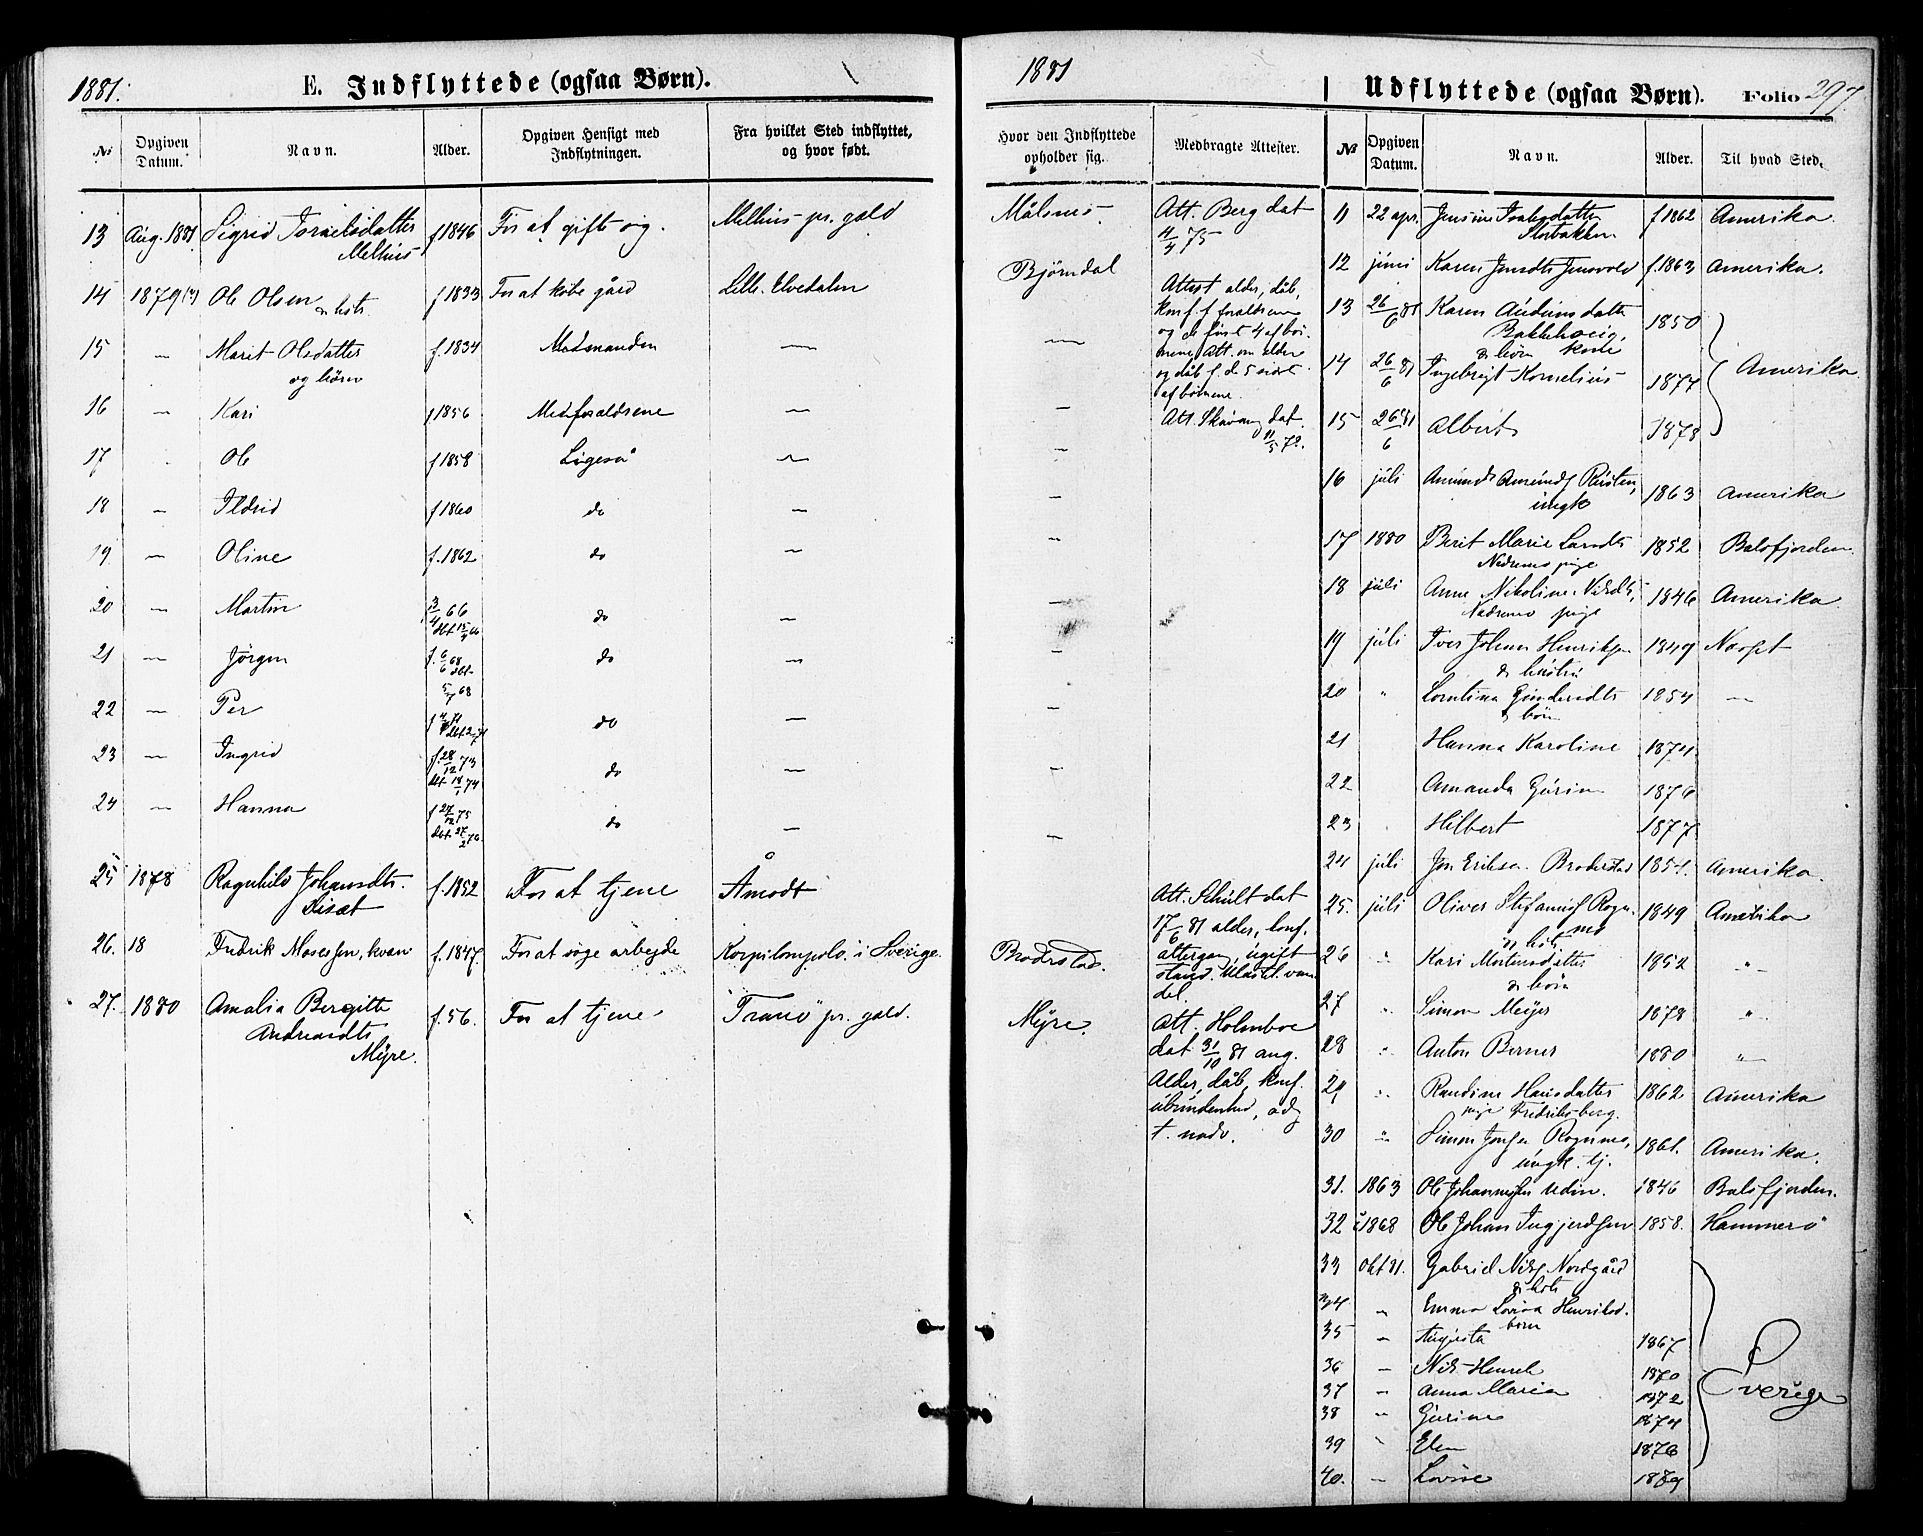 1881.
E. Indflyttede (ogsaa Børn).
№ Opgiven Datum. Navn. Alder. Opgiven Hensigt med Indflytningen. Fra hvilket Sted indflyttet, og hvor født.
13 Aug. 1881 Sigrid Israelsdatter f 1846 For at gifte sig. Melhus pr. gjeld
Melhus
14 1879(?) Ole Olsen f 1833 For at købe gård Lille Elvedalen
& hstr.
15 — Marit Olsdatter f. 1834 Med manden —
og børn
16 — Kari f 1856 Med forældrene —
17 Ole f 1858 Ligeså —
18 — Ildrid f 1860 do —
19 — Oline f. 1862 do —
20 — Martin 3/4 66 do —
21 — Jörgen f. 6/6 68 do —
dbt
5/7 68
22 — Per do —
23 — Ingrid f. 28/12 73 do —
24 — Hanna f 27/12 75 do —
25 1878 Ragnhild Johansdtr. f. 1852 For at tjene Åmodt
26. 18 Fredrik Mosessen, kvæn f. 1847. For at søge arbejde Korpilompolo i Sverige.
27. 1880 Amalia Bergitte f. 56. For at tjene Tranö pr. gjeld.
Andreasdtr
Myre.
1881
Udflyttede (ogsaa Børn). Folio 297.
Hvor den Indflyttede opholder sig. Medbragte Attester. № Opgiven Datum. Navn. Alder. Til hvad Sted.
Målsnes. Att. Berg dat
4/4 75
Björndal
Attest alder, dåb,
konf. f forældrene
og de först 4 af bör-
nene, Att. om alder
og dåb f. de 5 sidst
af börnene.
Att. dat
Brodrstad.
Att. Schult dat
17/6 81 alder, konf.
altergang, ugift
stand. Ulastel. van
del.
Myre.
Att. Holmboe
dat 31/10 81 ang.
Alder, dåb, konf.
ubundenhed, adg
t. nadv.
11 22 apr. Jensine f 1862 Amerika.
12 juni Karen f. 1863 Amerika.
13 26/6 81 Karen Audunsdatter 1850
& börn
14 26/6 81 Ingebrigt Kornelius 1877 Amerika
15 26/6 81 Albert 1878
16 juli Amund 1863 Amerika
ungk
17 1880 Berit Marie Larsdtr 1852 Balsfjorden
pige
18 juli Anne Nikoline Nilsdtr, 1846 Amerika
pige
19 juli Iver Johan Henriksen 1849
& hustru
20 " Lorntina 1854 —
& börn
21 Hanna Karoline 1874
22 Amanda Gurine 1876
23 Hilbert 1877
24 juli Jon Eriksen Brodrstad 1854. Amerika.
25. juli Oliver 1849 Amerika
& hstr.
26 " Kari Mortensdatter 1852 "
& börn
27 " Simon Meyer 1878 "
28 " Anton Berner 1880 "
29 " Randine Hansdatter 1862 Amerika
pige Fredriksberg.
30 " Simon Rognmo, 1861. Amerika.
ungk. tj.
31. 1863 Ole Johannessen 1846 Balsfjorden.
32 1868 Ole Johan 1858. Hammerö
33 Okt 81. Gabriel Nordgård
& hstr
34 " Emma Lovisa Henriksd.
börn
35 " Augusta 1867
36 — Nils Henrik 1870
37 — Anna Maria 1872 Sverige
38 " Gurine 1874
39 " Elen 1876
40. — Lovise 1879